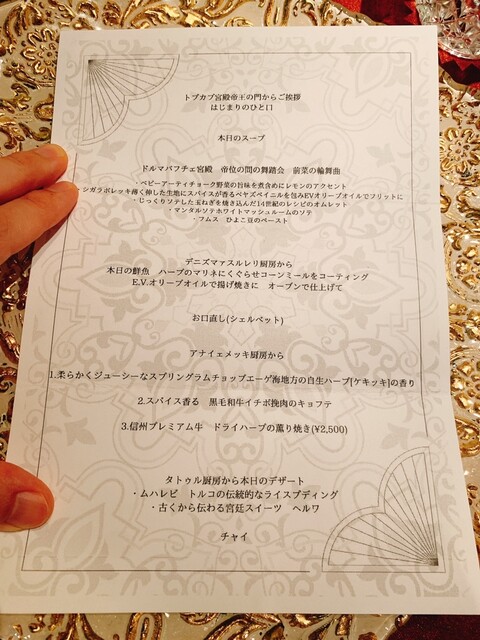 トプカプ宮殿帝王の門からご挨拶
はじまりのひと口
本日のスープ
ドルマバフチェ宮殿 帝位の間の舞踏会 前菜の輪舞曲
・ベビーアーティチョーク野菜の旨味を煮含めにレモンのアクセント
・シガラボレッキ薄く伸した生地にスパイスが香るベヤズペイニルを包みEVオリーブオイルでフリットに
・じっくりソテした玉ねぎを焼き込んだ14世紀のレシピのオムレット
・マンタルソテホワイトマッシュルームのソテ
・フムス ひよこ豆のペースト
デニズマァスルレリ厨房から
本日の鮮魚 ハーブのマリネにくぐらせコーンミールをコーティング
E.V.オリーブオイルで揚げ焼きに オーブンで仕上げて
お口直し(シェルベット)
アナイェメッキ厨房から
1.柔らかくジューシーなスプリングラムチョップエーゲ海地方の自生ハーブ[ケキッキ]の香り
2.スパイス香る 黒毛和牛イチボ挽肉のキョフテ
3.信州プレミアム牛 ドライハーブの薫り焼き(¥2,500)
タトゥル厨房から本日のデザート
・ムハレビ トルコの伝統的なライスプディング
・古くから伝わる宮廷スイーツ ヘルワ
チャイ